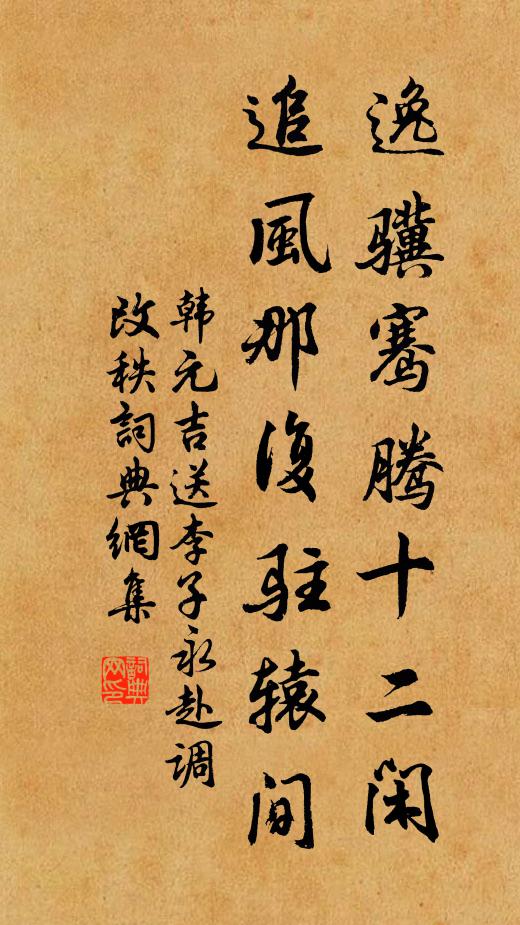 逸骥骞腾十二闲
追風那復駐辕间
韩元吉送李子永赴调
改秩詞典網集
詞典网印